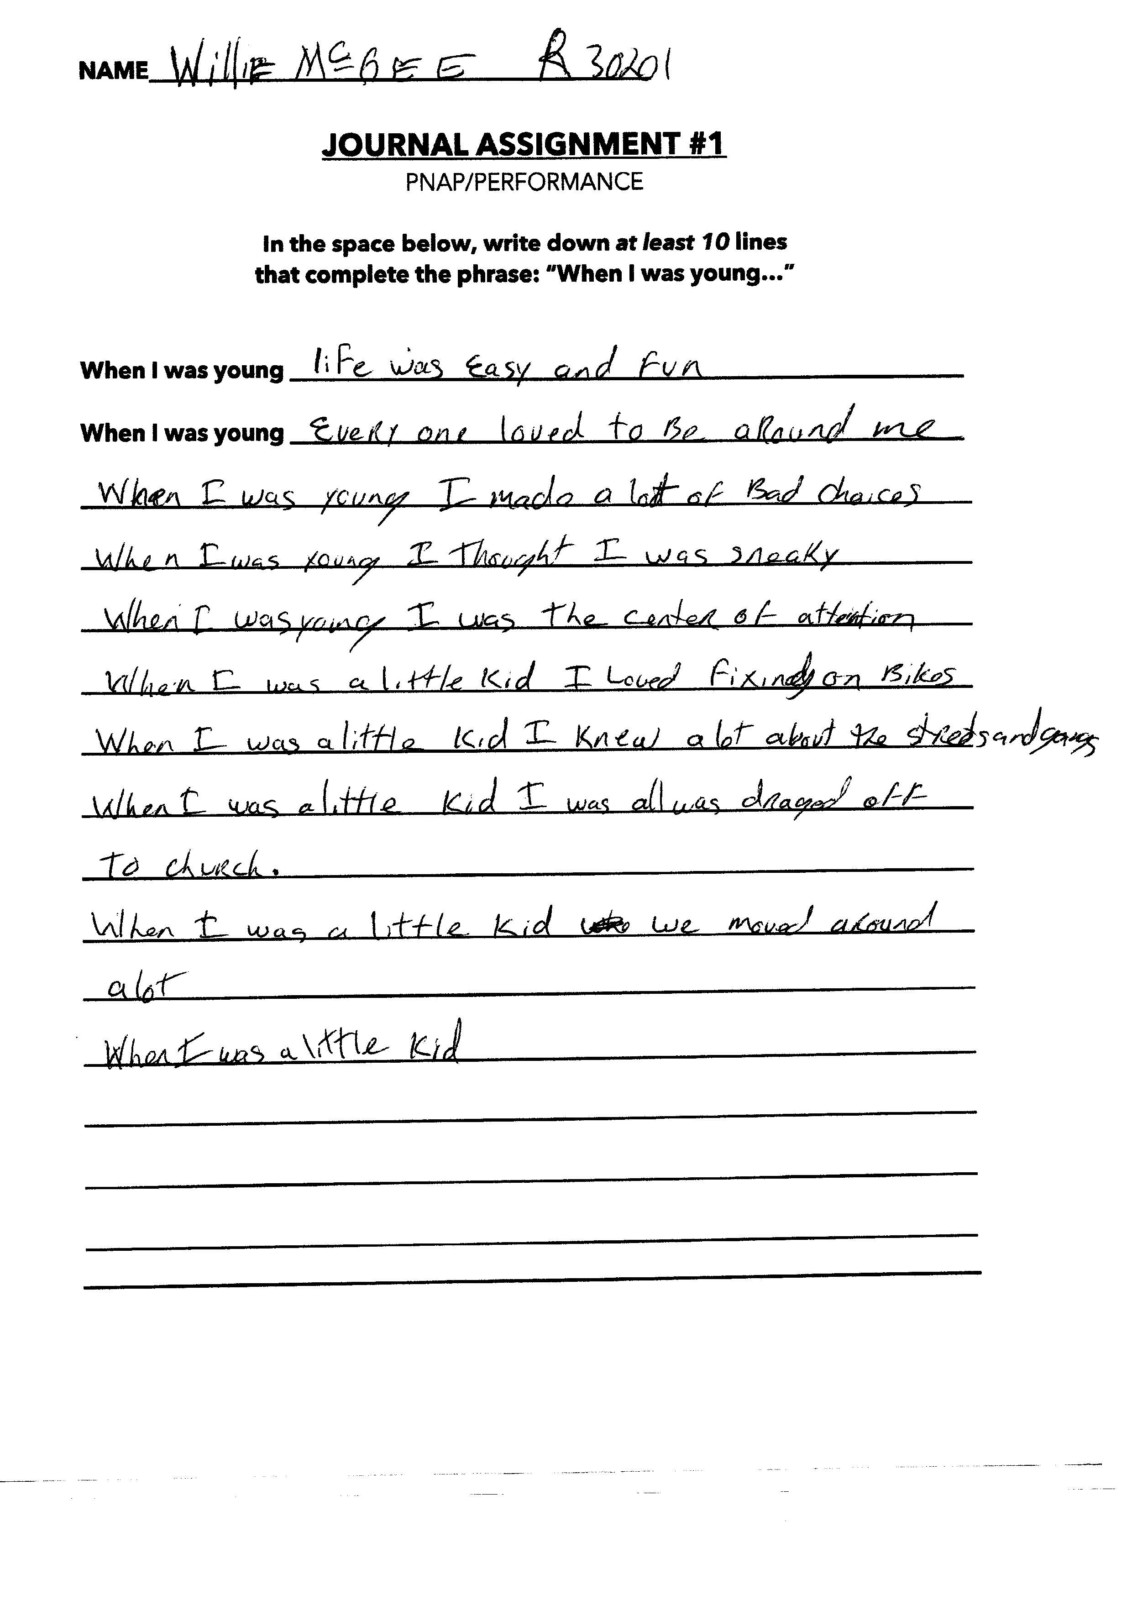 NAME Willie McGEE R30201
JOURNAL ASSIGNMENT #1
PNAP/PERFORMANCE
In the space below, write down at least 10 lines
that complete the phrase: "When I was young..."
When I was young life was Easy and Fun
When I was young Every one loved to Be aRound me
When I was young I made a lot of Bad choices
When I was young I thought I was sneaky
When I was young I was the center of attention
When I was a little Kid I Loved Fixing on Bikes
When I was a little Kid I Knew a lot about the streets and gangs
When I was a little Kid I was all was draged off
To church.
When I was a little Kid we moved around
a lot
When I was a little Kid